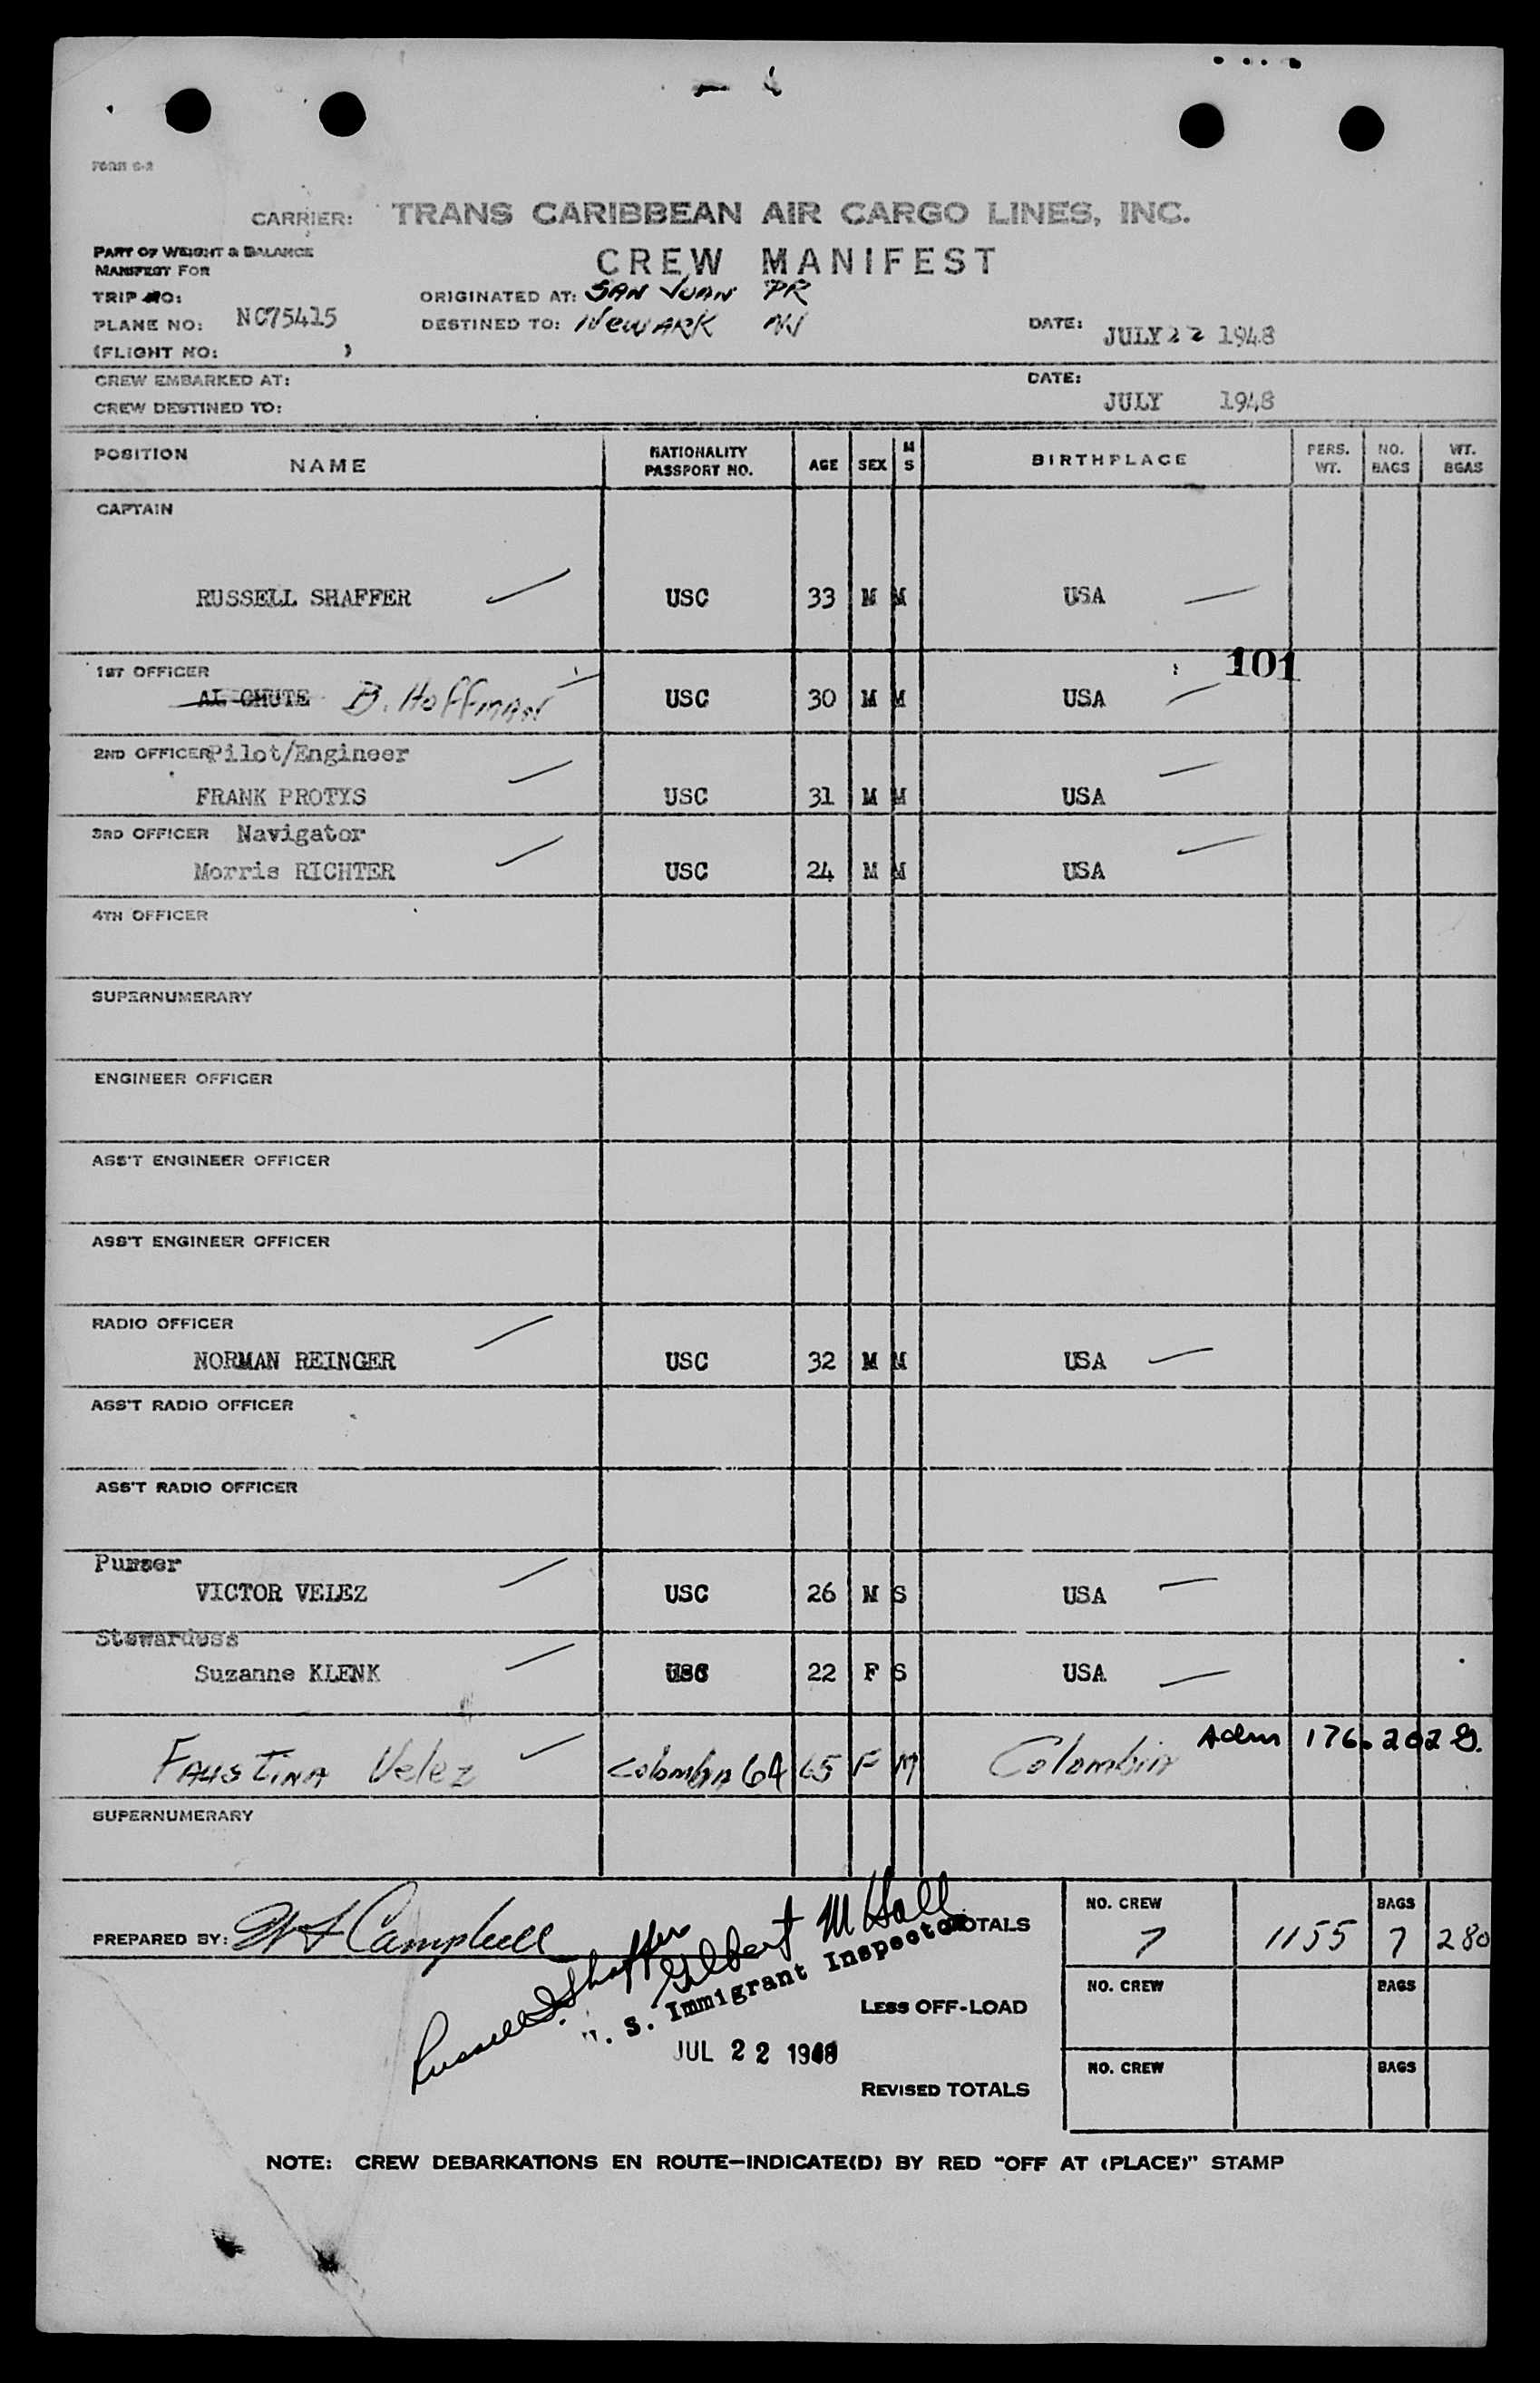 FORM C-2
CARRIER: TRANS CARIBBEAN AIR CARGO LINES, INC.
PART OF WEIGHT & BALANCE
MANIFEST FOR
CREW MANIFEST
TRIP NO:
ORIGINATED AT: SAN JUAN PR
PLANE NO: NC75415
DESTINED TO: NEWARK NJ
DATE: JULY 22 1948
(FLIGHT NO: )
CREW EMBARKED AT:
DATE:
CREW DESTINED TO:
JULY 1948
POSITION NAME NATIONALITY PASSPORT NO. AGE SEX M S BIRTHPLACE PERS. WT. NO. BAGS WT. BGAS
CAPTAIN
RUSSELL SHAFFER USC 33 M M USA
101
1ST OFFICER
AL CHUTE B. HOFFMAN USC 30 M M USA
2ND OFFICER Pilot/Engineer
FRANK PROTYS USC 31 M M USA
3RD OFFICER Navigator
Morris RICHTER USC 24 M M USA
4TH OFFICER
SUPERNUMERARY
ENGINEER OFFICER
ASS'T ENGINEER OFFICER
ASS'T ENGINEER OFFICER
RADIO OFFICER
NORMAN REINGER USC 32 M M USA
ASS'T RADIO OFFICER
ASS'T RADIO OFFICER
Purser
VICTOR VELEZ USC 26 M S USA
Stewardess
Suzanne KLENK USC 22 F S USA
FAUSTINA Velez Colombia 64 65 F M Colombia Adm 176.202 G.
SUPERNUMERARY
PREPARED BY: Campbell
Russell Shaffer
Gilbert M Hall
U. S. Immigrant Inspector
JUL 22 1948
TOTALS NO. CREW 7 1155 BAGS 7 280
LESS OFF-LOAD NO. CREW BAGS
REVISED TOTALS NO. CREW BAGS
NOTE: CREW DEBARKATIONS EN ROUTE—INDICATE(D) BY RED "OFF AT (PLACE)" STAMP